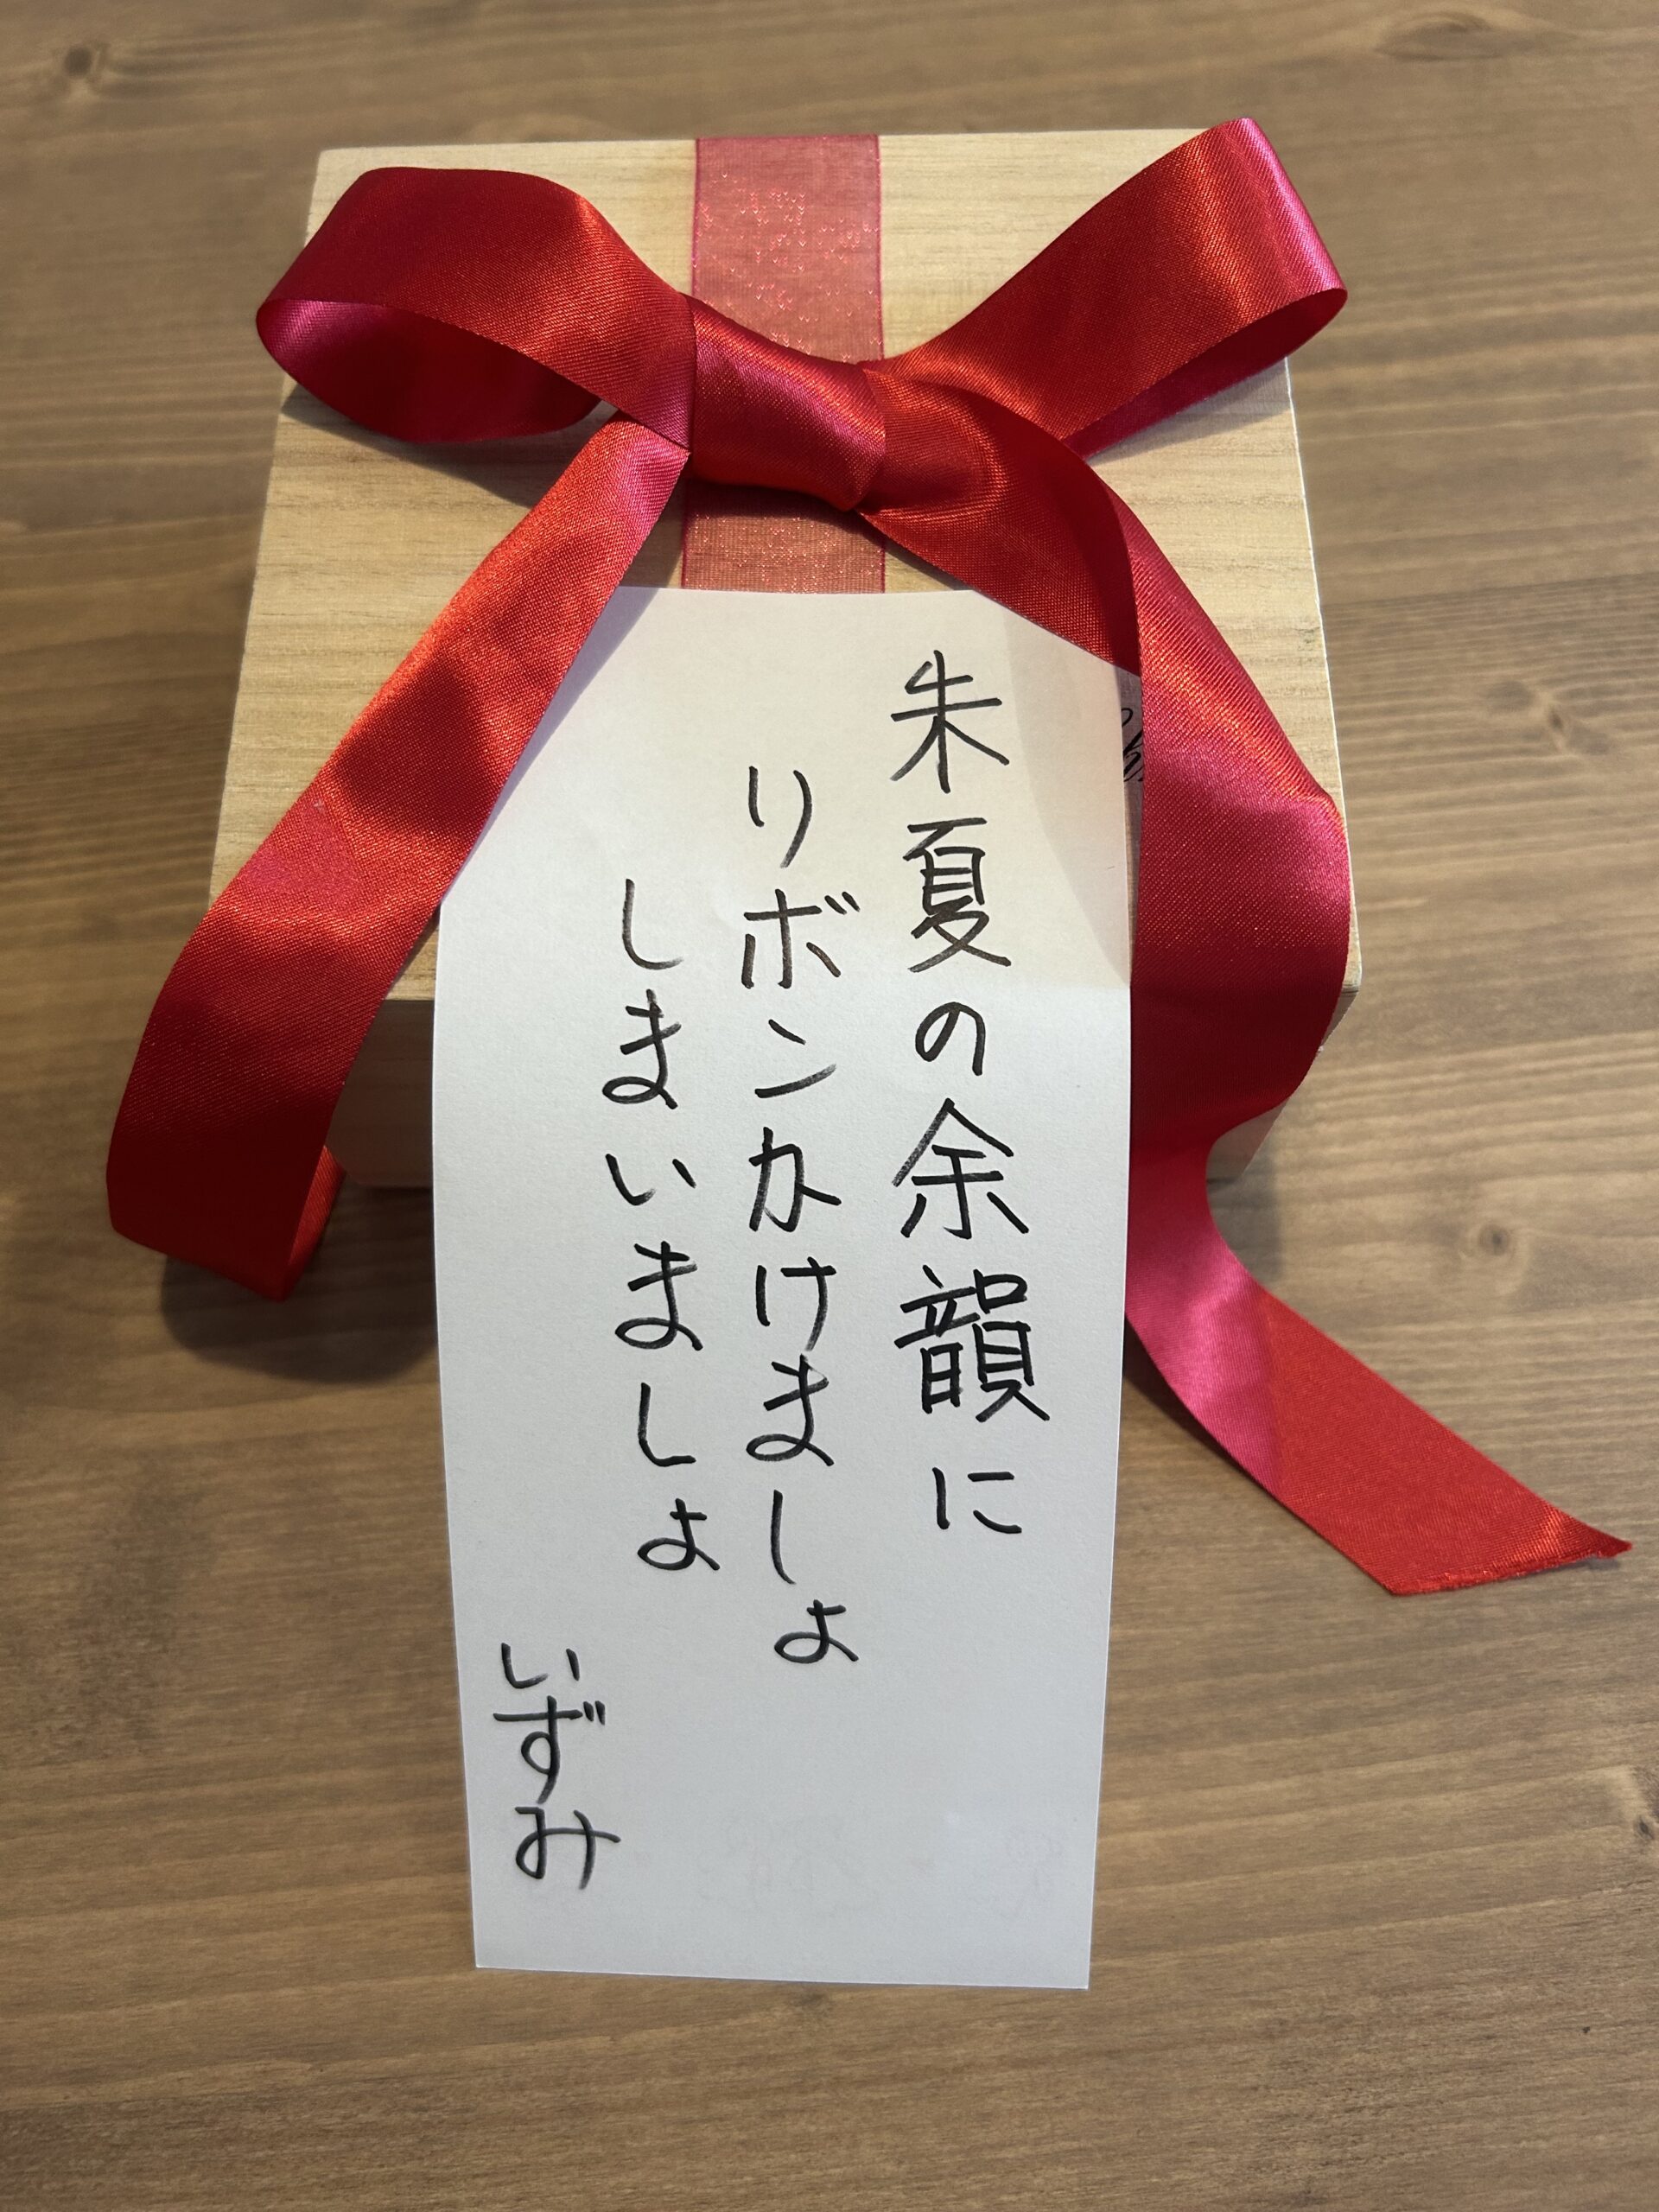 朱夏の余韻に
リボンかけましょ
しまいましょ
いずみ